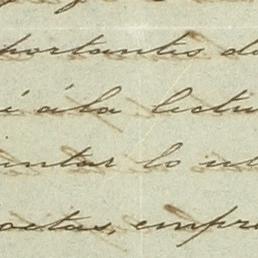 portantes d
í á la lectu
untar lo u
oetas, empr